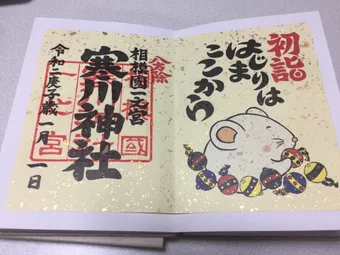 初詣
はじりは
はま
ここから
八方除
相模國一之宮
寒川神社
令和二庚子歳一月一日